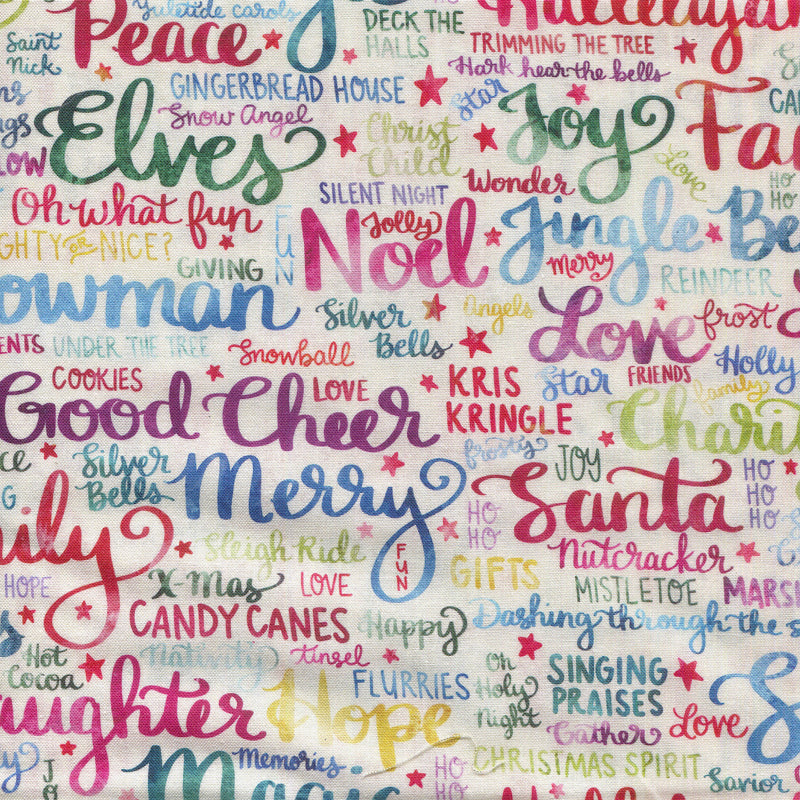 Peace
Yuletide carols
DECK THE
HALLS
Hallelujah
TRIMMING THE TREE
Saint
Nick
Hark hear the bells
GINGERBREAD HOUSE
Star
Snow Angel
Elves
Christ
Child
Joy
Love
SILENT NIGHT
Wonder
HO
HO
Oh what fun
FUN
Noel
Jolly
Jingle
Merry
NICE?
GIVING
REINDEER
owman
Silver
Bells
Angels
Love
frost
UNDER THE TREE
Snowball
Holly
COOKIES
LOVE
KRIS
KRINGLE
Star
FRIENDS
family
Good Cheer
Charit
frosty
Silver
Bells
Merry
JOY
HO
HO
HO
Santa
HO
HO
ily
Sleigh Ride
FUN
GIFTS
Nutcracker
HOPE
X-Mas
LOVE
MISTLETOE
MARSH
CANDY CANES
Happy
Dashing through the s
Hot
Cocoa
Nativity
Tinsel
FLURRIES
Oh
Holy
Night
SINGING
PRAISES
aughter
Hope
Gather
Love
Memories
CHRISTMAS SPIRIT
Magic
HO
HO
Savior